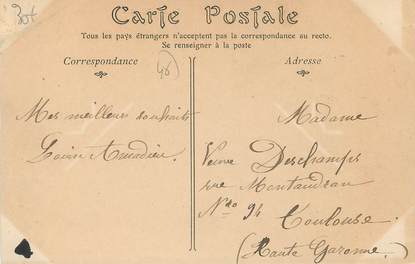 Lot
Carte Postale
Tous les pays étrangers n'acceptent pas la correspondance au recto.
Se renseigner à la poste
Correspondance
Adresse
46
Mes meilleurs souhaits
Amadieu.
Madame
Veuve Deschamps
rue Montaudran
No 94
Toulouse
(Haute Garonne)